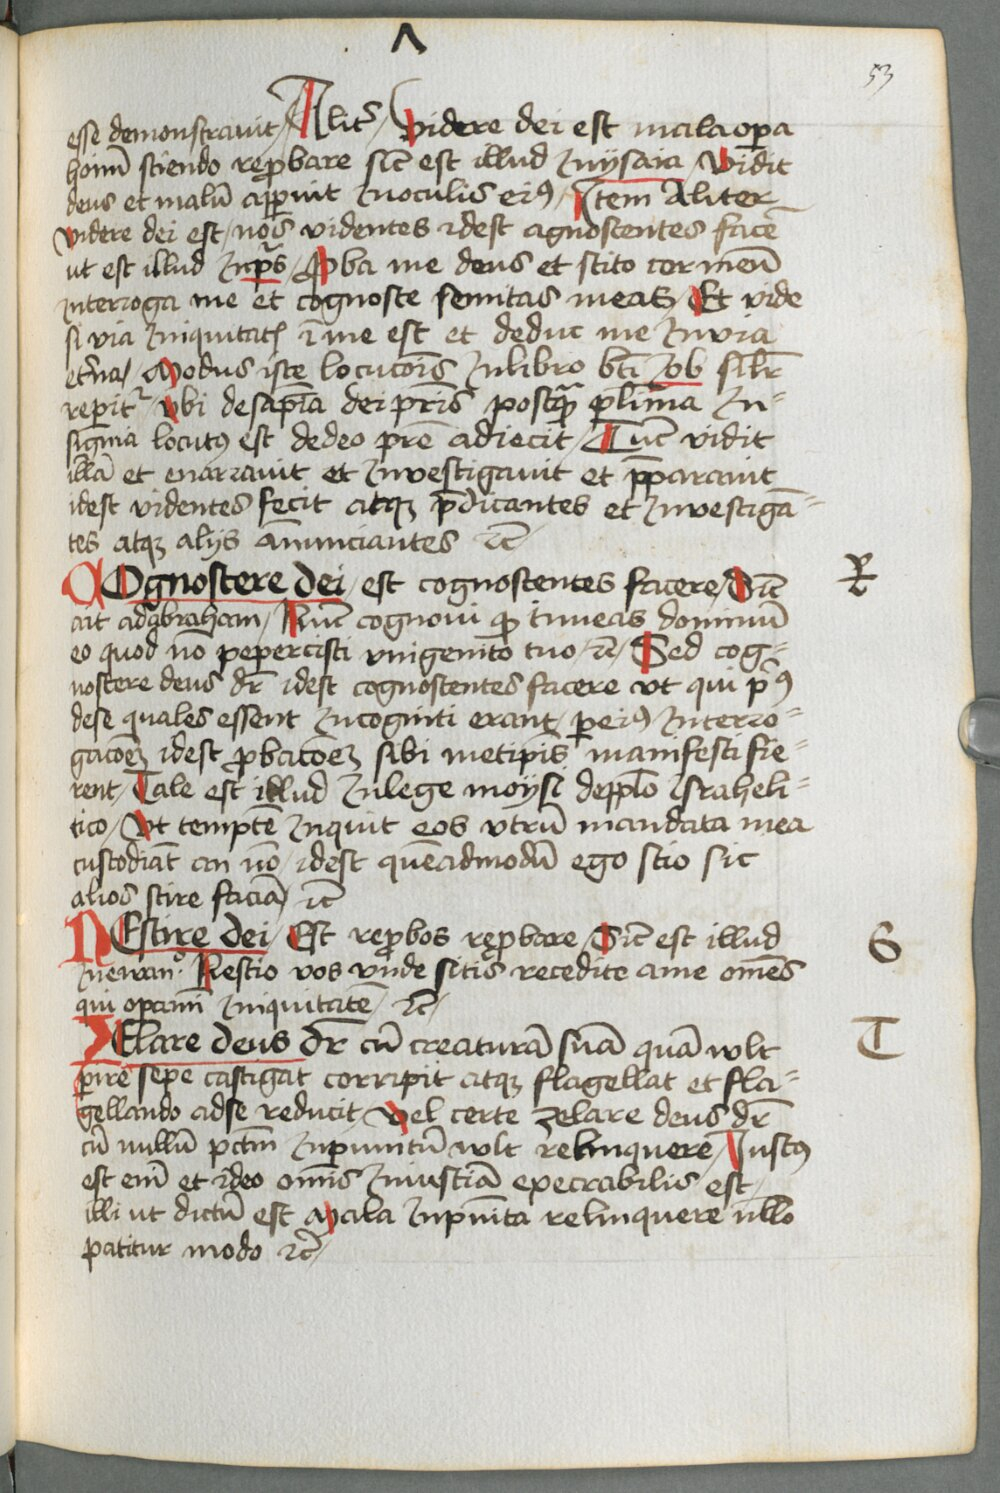 53
esse demonstrauit / Alit᷒ / videre dei est mala oꝑa
hoīm̄ sciendo reꝓbare sic̄ est illud In ysaia / vidit
deus et malū appuit In oculis eiꝰ / Item Aliter
videre dei est / nōs videntes idest agnoscentes facē
ut est illud In ps̄ / Proba me deus et scito cor meū
Interroga me et cognosce semitas meas / Et vide
si via Iniquitat᷒ ī me est et deduc me In via
et̄na / Modus iste locucōis In libro bt̄i Iob silr̄
reperit᷑ / vbi de sapīa dei pr̄is postqᷓ plīma In-
signia locutꝰ est de deo prē adiecit / Tūc vidit
illā et enarrauit et Inuestigauit et p̄parauit
idest videntes fecit atqꝫ p̄dicantes et Inuestigā-
tes atqꝫ alijs an̄unciantes ⁊c̄ /
COgnoscere dei / est cognoscentes facere / Sic̄
ait ad abraham / Nūc cognoui ꝙ timeas dominū
eo quod nō pepercisti vnigenito tuo / ⁊c̄ / Sed cog-
noscere deus dr̄ idest cognoscentes facere vt qui pͥꝰ
de se quales essent Incogniti erant / per eiꝰ Interro-
gacoēꝫ idest ꝓbacoēꝫ sibi metipīs manifesti fie-
rent / Tale est illud In lege moysi de pp̄lo Israheli-
tico / Vt temptē Inquit eos vtrū mandata mea
custodiāt an nō / idest quēadmodū ego scio sic
alios scire faciā / ⁊c̄
NEscire dei / Est reꝓbos reꝓbare / Sic̄ est illud
In ewanᵒ. Nescio vos vnde sitis recedite a me om̄es
qui oꝑamī Iniquitatē / ⁊c̄ /
ZElare deus dr̄ cū creaturā suā quā wlt
ꝑire sepe castigat corripit atqꝫ flagellat et fla-
gellando ad se reducit / vel certe zelare deus dr̄
cū nullū pctm̄ Inpunitū wlt relinquere / Iustꝰ
est eni᷒ et ideo om̄is Iniusticiā execrabilis est
illi ut dictū est Mala Inpunita relinquere nllo
patitur modo ⁊c̄ /
R
S
T